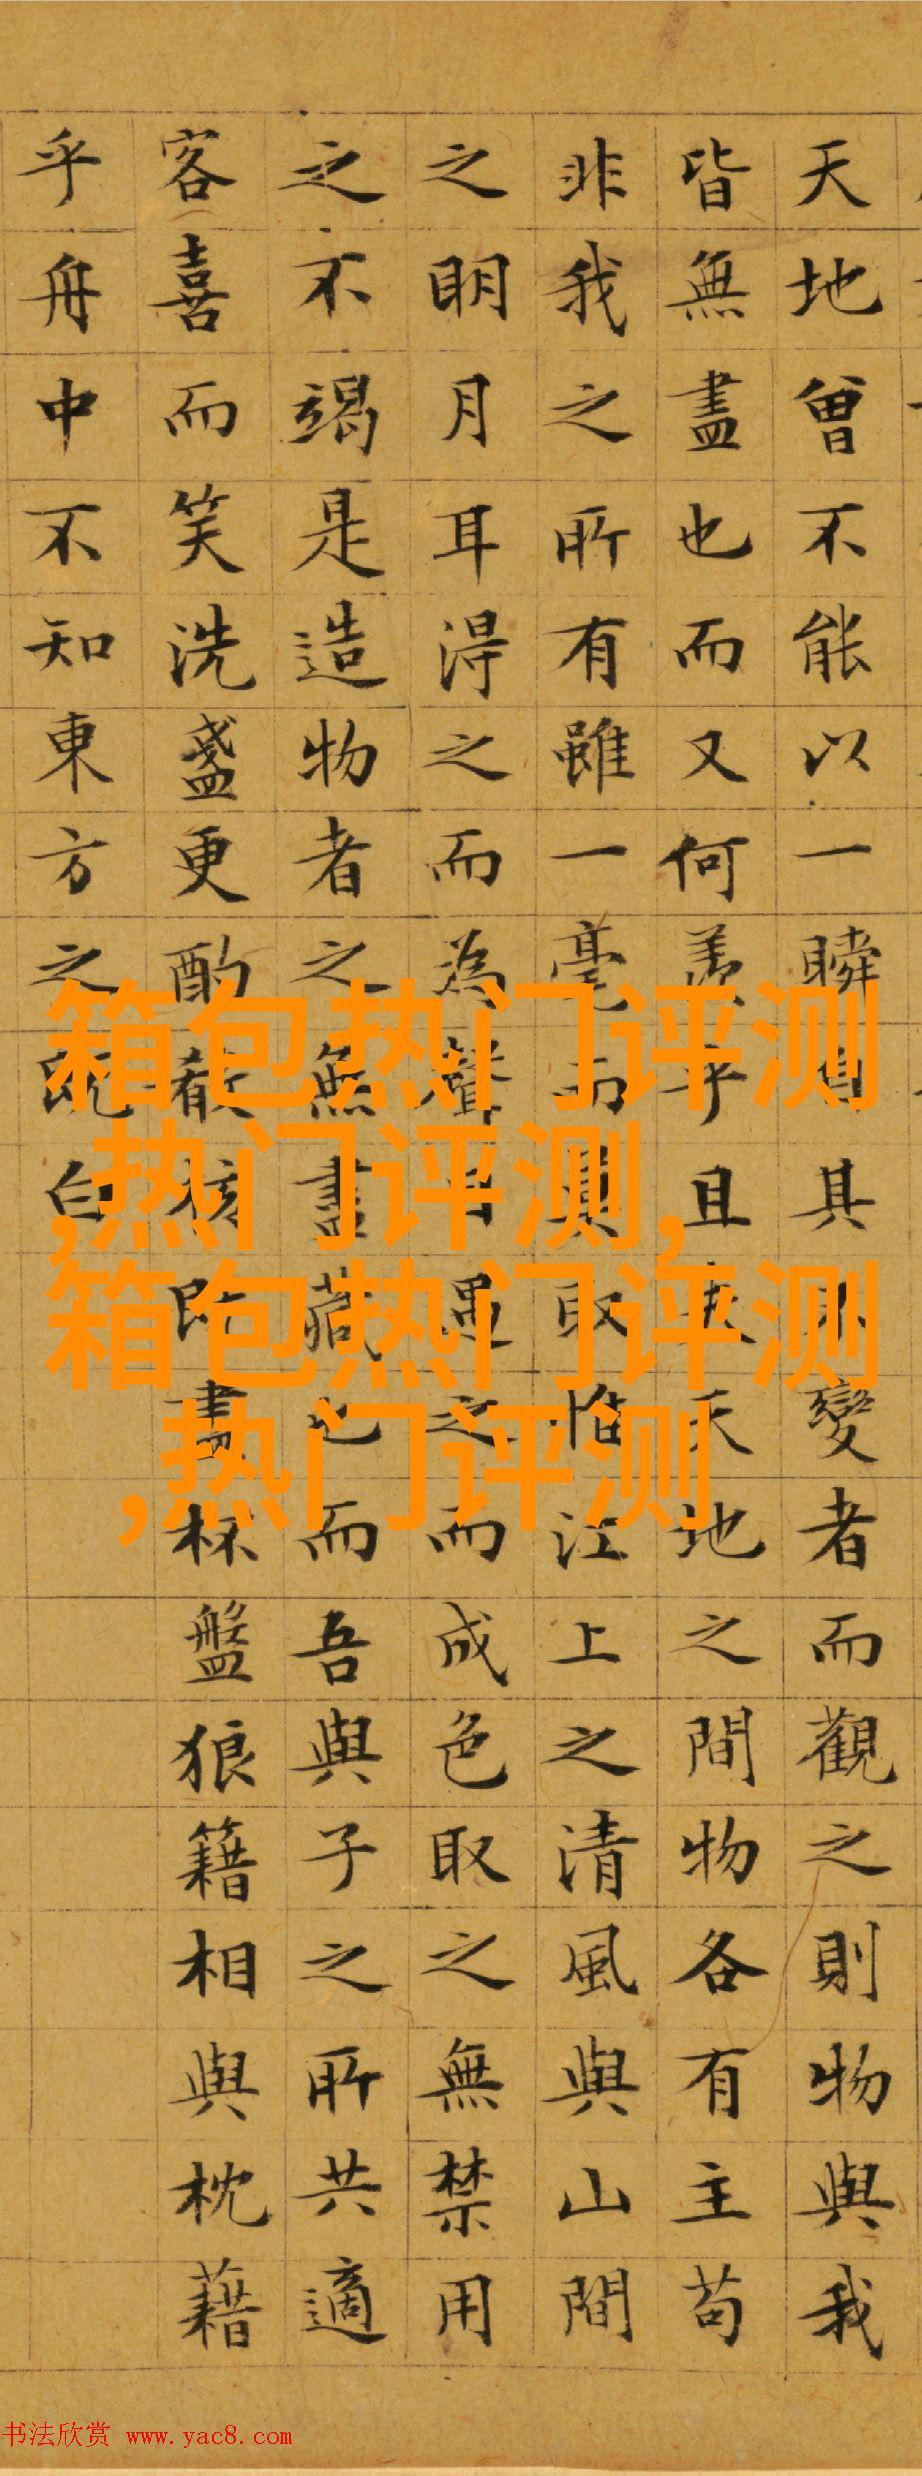 天地曾不能以一瞬自其不變者而觀之則物與我
皆無盡也而又何羨乎且夫天地之間物各有主苟
非我之所有雖一毫而莫取惟江上之清風與山間
之明月耳得之而為聲目遇之而成色取之無禁用
之不竭是造物者之無盡藏也而吾與子之所共適
客喜而笑洗盞更酌核既盡杯盤狼籍相與枕藉
乎舟中不知東方之既白
箱包热门评测
,热门评测,
箱包热门评测
,热门评测
书法欣赏 www.yac8.com